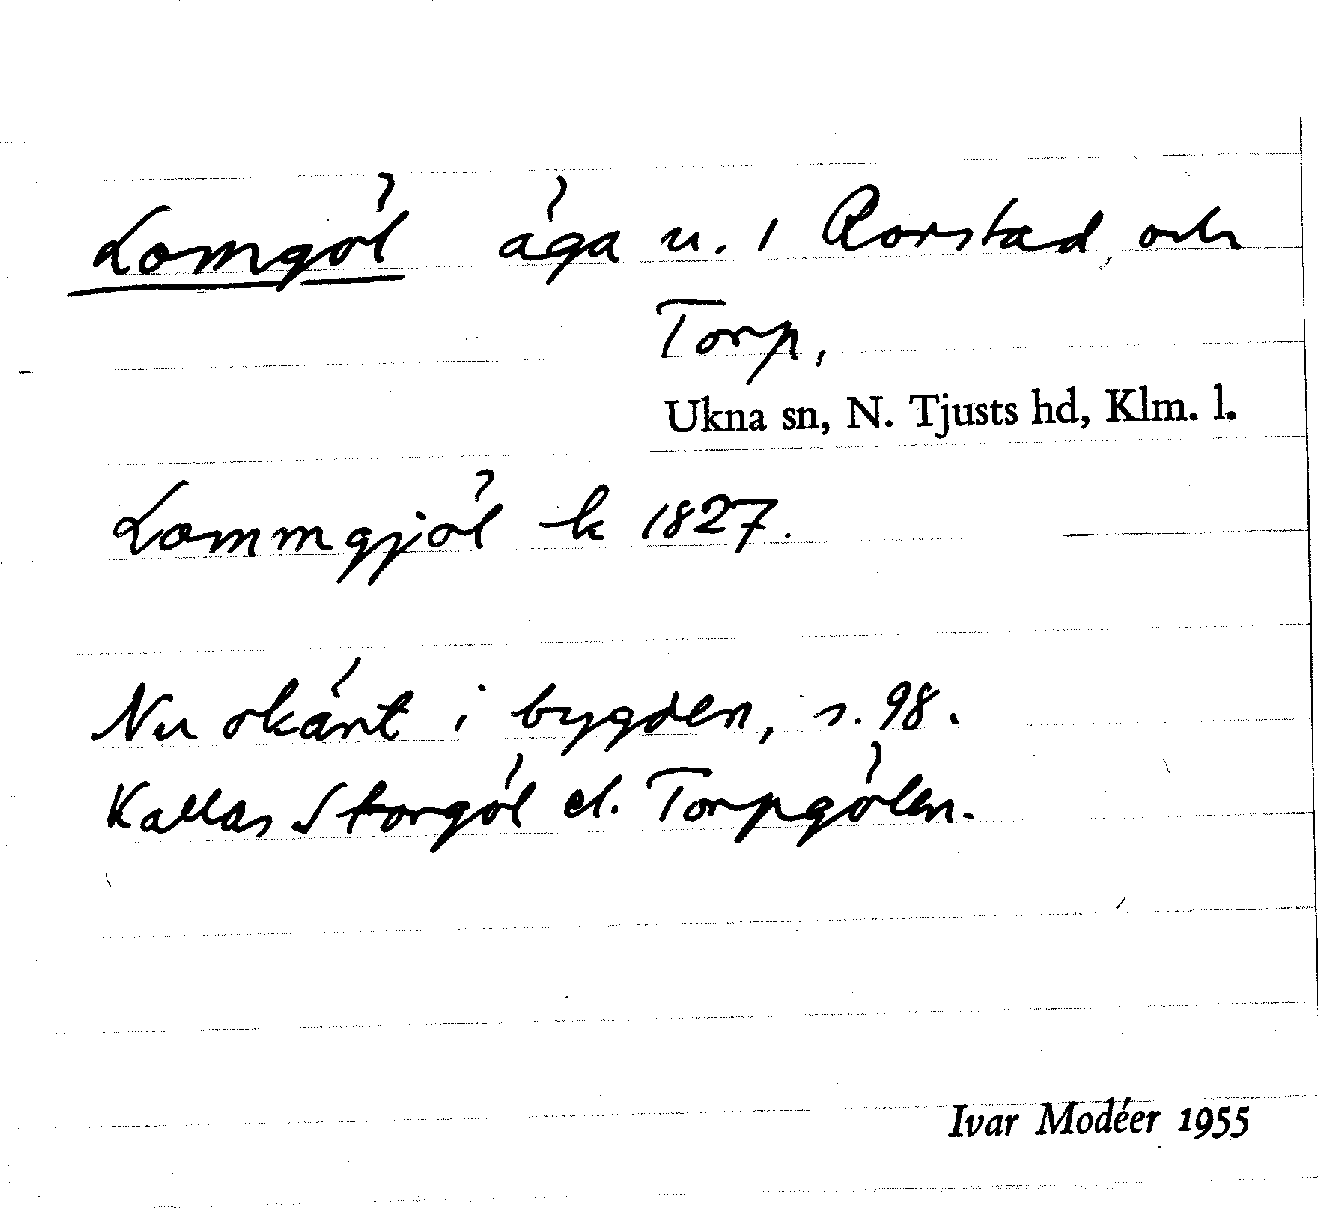 Lomgöl äga u. 1 Rorstad, och
Torp,
Ukna sn, N. Tjusts hd, Klm. l.
Lommgjöl k 1827.
Nu okänt i bygden, s. 98.
Kallas Storgöl el. Torpgölen.
Ivar Modéer 1955